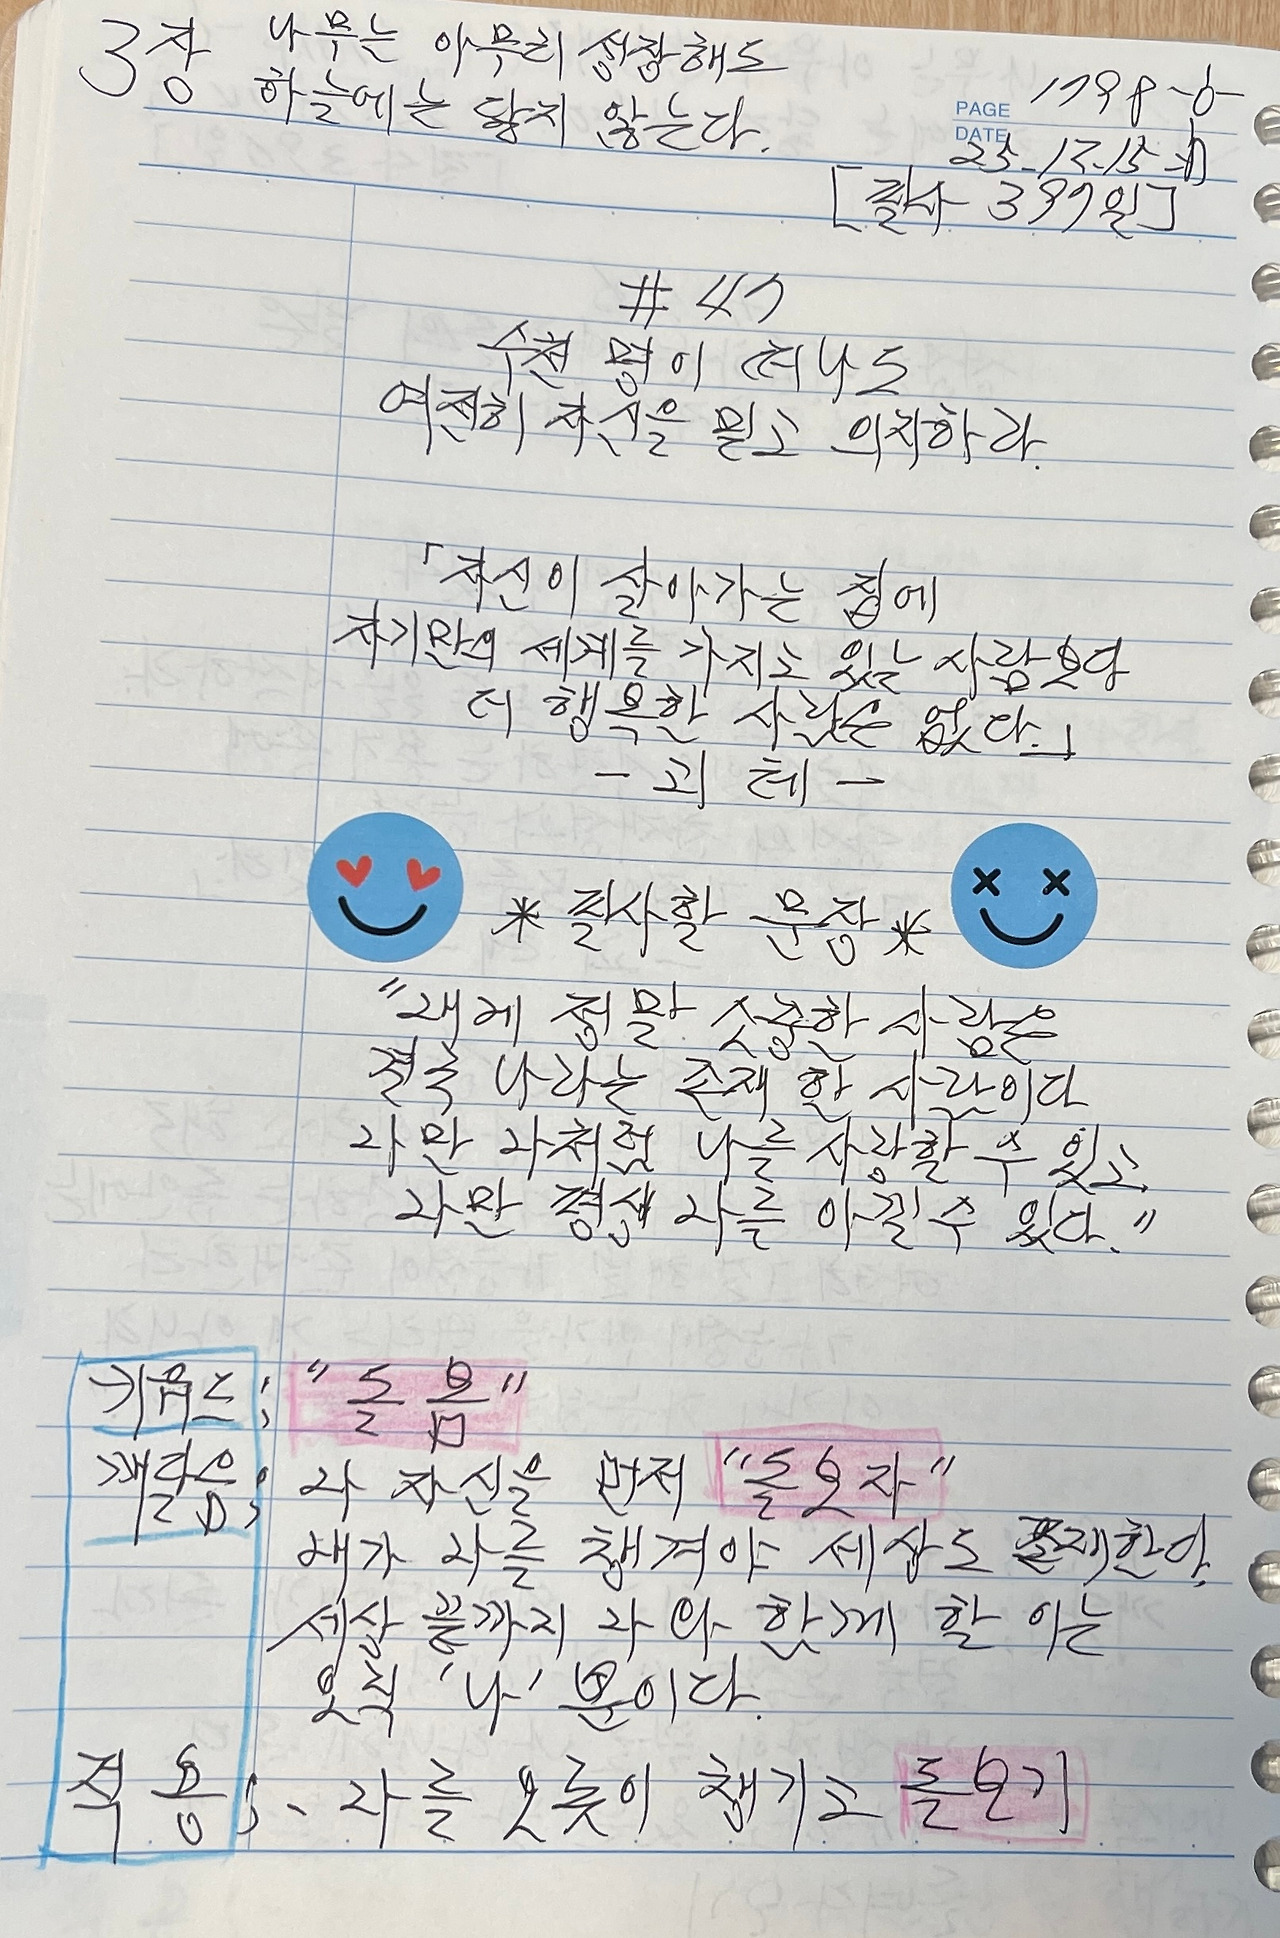 3장 나무는 아무리 성장해도
하늘에는 닿지 않는다.
PAGE
DATE 25-12-15-월
[필사 397일]
#47
수천 명이 떠나도
여전히 자신을 믿고 의지하라.
「자신이 살아가는 집에
자기만의 세계를 가지고 있는 사람보다
더 행복한 사람은 없다.」
- 괴테 -
*필사할 문장*
"내게 정말 소중한 사람은
결국 나라는 존재 한 사람이다
나만 나처럼 나를 사랑할 수 있고,
나만 평생 나를 아낄 수 있다."
키워드; "돌봄"
깨달음; 나 자신을 먼저 "돌보자"
내가 나를 챙겨야 세상도 존재한다.
세상 끝까지 나와 함께 할 이는
오직 '나' 뿐이다.
적용; 나를 오롯이 챙기고 돌보기